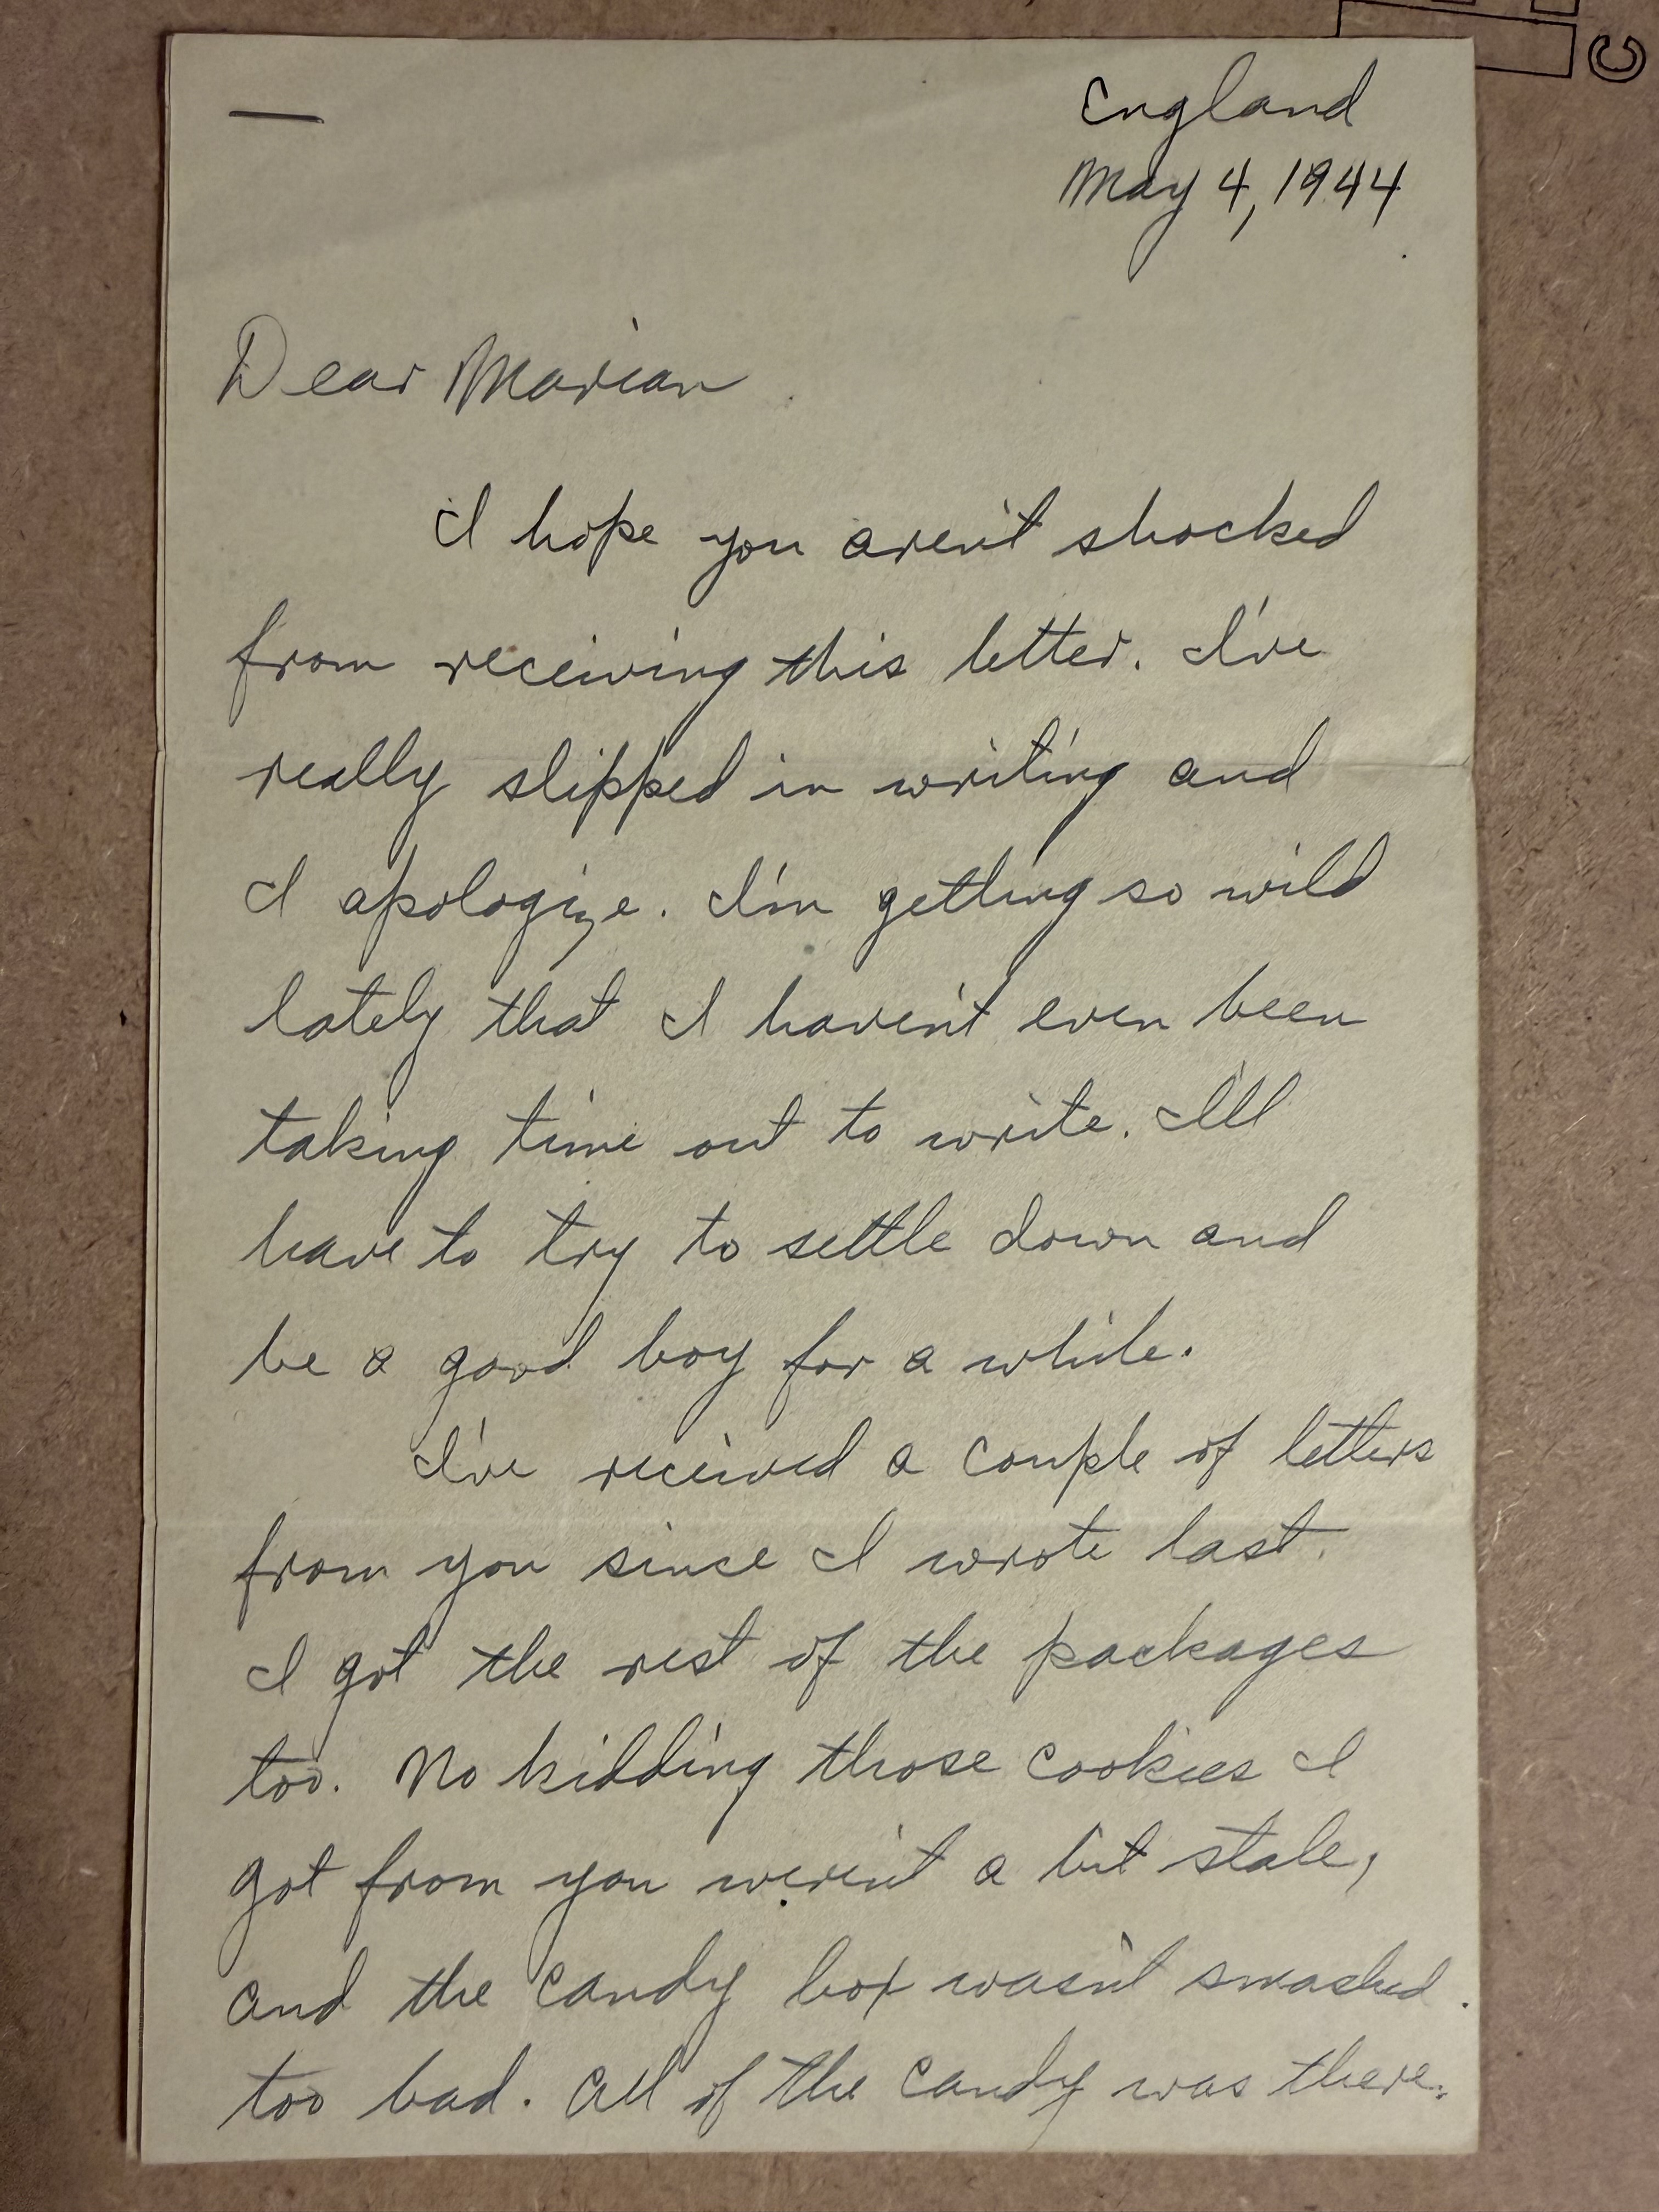 C
England
May 4, 1944
Dear Marian
I hope you aren't shocked
from receiving this letter. I've
really slipped in writing and
I apologize. I'm getting so wild
lately that I haven't even been
taking time out to write. I'll
have to try to settle down and
be a good boy for a while.
I've received a couple of letters
from you since I wrote last.
I got the rest of the packages
too. No kidding those cookies I
got from you weren't a bit stale,
and the candy box wasn't smashed.
too bad. All of the candy was there.